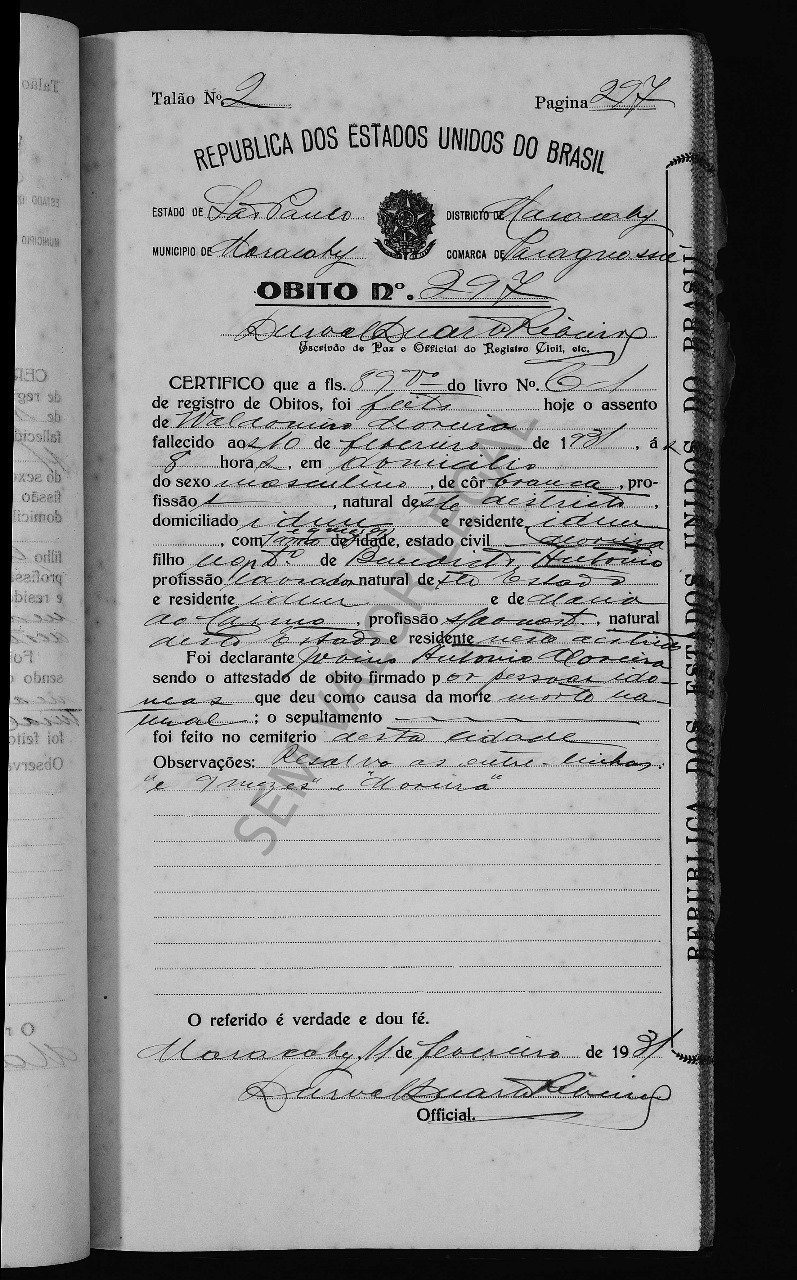 Talão Nº 2 Pagina 297
REPUBLICA DOS ESTADOS UNIDOS DO BRASIL
ESTADO DE São Paulo DISTRICTO DE Maracahy
MUNICIPIO DE Maracahy COMARCA DE Paraguassu
OBITO Nº. 297
Durval Duarte Ribeiro
Escrivão de Paz e Official do Registro Civil, etc.
CERTIFICO que a fls. 89 vº do livro Nº. C 1
de registro de Obitos, foi feito hoje o assento
de Waldomiro Moreira
fallecido aos 10 de fevereiro de 1931, á s
8 horas, em domicilio
do sexo masculino, de côr branca, pro-
fissão, natural deste districto,
domiciliado idem e residente idem
e mezes
, com de idade, estado civil Moreira
filho de Benedicto Antonio
profissão lavrador natural deste Estado
e residente idem e de Maria
do Carmo, profissão, natural
deste Estado e residente neste districto
Foi declarante Antonio Moreira
sendo o attestado de obito firmado por pessoas ido-
neas que deu como causa da morte morte na-
tural; o sepultamento
foi feito no cemiterio desta cidade
Observações: Resalvo as entre-linhas:
"e mezes" e "Moreira"
O referido é verdade e dou fé.
Maracahy, 11 de fevereiro de 1931
Durval Duarte Ribeiro
Official.
SEM VALOR LEGAL
REPUBLICA DOS ESTADOS UNIDOS DO BRASIL